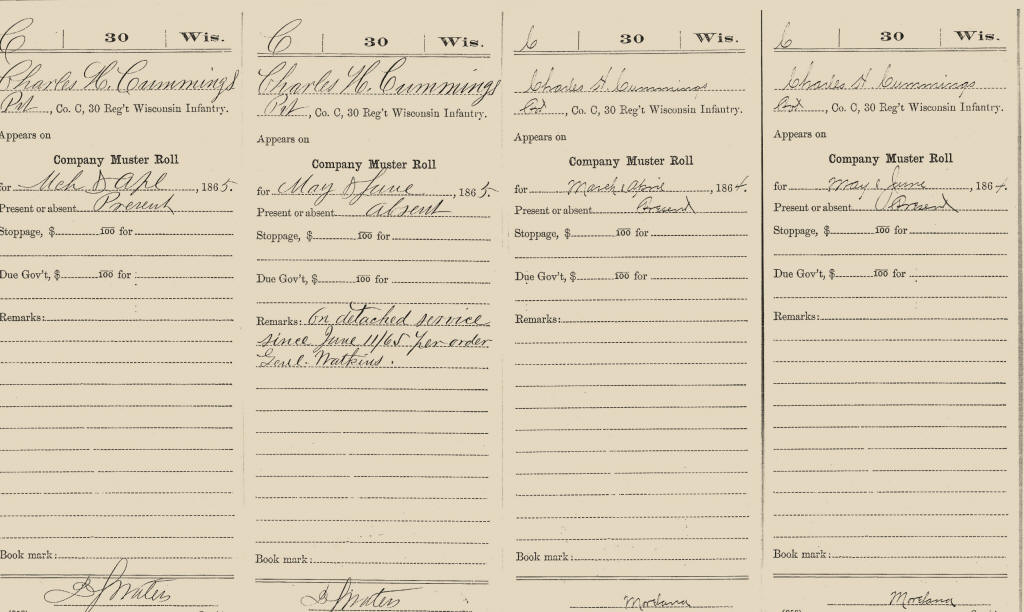 C | 30 | Wis.
Charles H. Cummings
Pvt, Co. C, 30 Reg't Wisconsin Infantry.
Appears on
Company Muster Roll
for Mch & Apl, 1865.
Present or absent Present
Stoppage, $ 100 for
Due Gov't, $ 100 for
Remarks:
Book mark:
C | 30 | Wis.
Charles H. Cummings
Pvt, Co. C, 30 Reg't Wisconsin Infantry.
Appears on
Company Muster Roll
for May & June, 1865.
Present or absent absent
Stoppage, $ 100 for
Due Gov't, $ 100 for
Remarks: On detached service
since June 11/65 per order
Genl. Watkins.
Book mark:
C | 30 | Wis.
Charles H Cummings
, Co. C, 30 Reg't Wisconsin Infantry.
Appears on
Company Muster Roll
for March & April, 1864.
Present or absent Present
Stoppage, $ 100 for
Due Gov't, $ 100 for
Remarks:
Book mark:
C | 30 | Wis.
Charles H Cummings
, Co. C, 30 Reg't Wisconsin Infantry.
Appears on
Company Muster Roll
for May & June, 1864.
Present or absent Present
Stoppage, $ 100 for
Due Gov't, $ 100 for
Remarks:
Book mark: